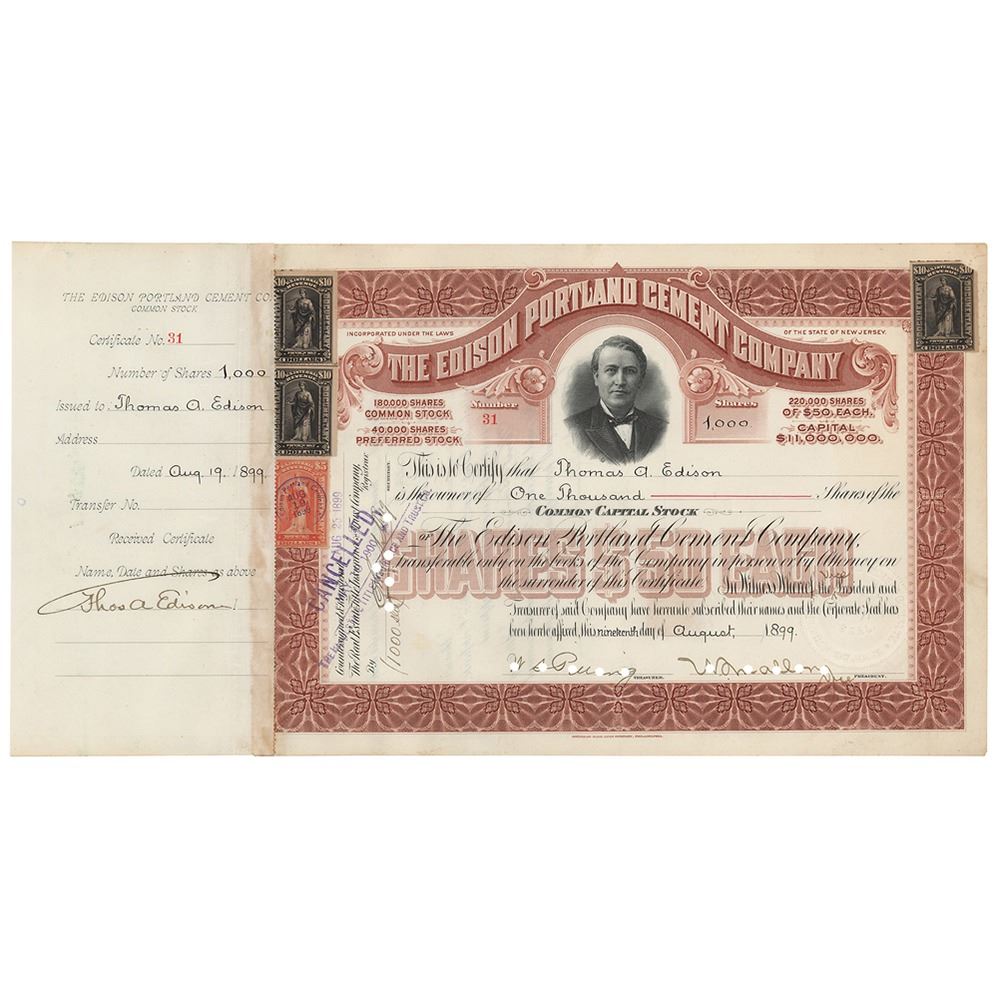 THE EDISON PORTLAND CEMENT CO.
COMMON STOCK
Certificate No. 31
Number of Shares 1,000
Issued to Thomas A. Edison
Address
Dated Aug. 19. 1899
Transfer No.
Received Certificate
Name, Date and Shares as above
Thos A Edison
$10 $10
DOCUMENTARY
$10 $10
DOCUMENTARY
$5
AUG
1899
$10 $10
DOCUMENTARY
INCORPORATED UNDER THE LAWS OF THE STATE OF NEW JERSEY.
THE EDISON PORTLAND CEMENT COMPANY
180,000 SHARES
COMMON STOCK
40,000 SHARES
PREFERRED STOCK
Number
31
Shares
1,000
220,000 SHARES
OF $50, EACH,
CAPITAL
$11,000,000.
This is to Certify that Thomas A. Edison
is the owner of One Thousand Shares of the
COMMON CAPITAL STOCK
of The Edison Portland Cement Company,
SHARES $50 EACH
transferable only on the books of the Company in person or by Attorney on
the surrender of this Certificate. In Witness Whereof, the President and
Treasurer of said Company have hereunto subscribed their names and the Corporate Seal has
been hereto affixed, this nineteenth day of August, 1899.
TREASURER.
Vice PRESIDENT.
Countersigned &
The Real Estate Title Insurance and Trust Company,
Registrar
By
CANCELLED
AUG 25 1899